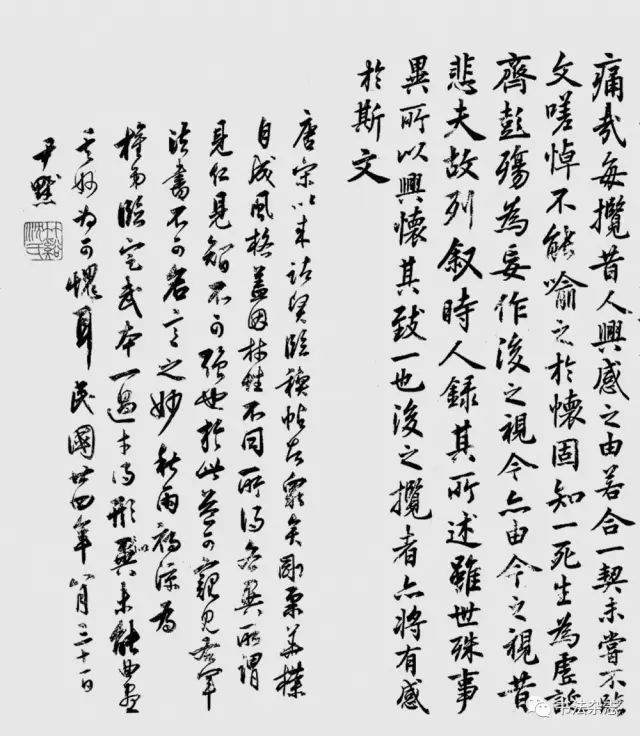 痛哉每攬昔人興感之由若合一契未嘗不臨
文嗟悼不能喻之於懷固知一死生為虛誕
齊彭殤為妄作後之視今亦由今之視昔
悲夫故列叙時人錄其所述雖世殊事
異所以興懷其致一也後之攬者亦將有感
於斯文
唐宋以來諸賢臨禊帖者衆矣剛柔華樸
自成風格蓋因材性不同所得各異所謂
見仁見智不可強也於此益可窺見右軍
法書不可名言之妙 秋雨稍涼為
弟臨定武本一過才得形似未能曲盡
其妙為可愧耳 民國卅四年八月三十一日
尹默
竹谿沈氏
书法杂志